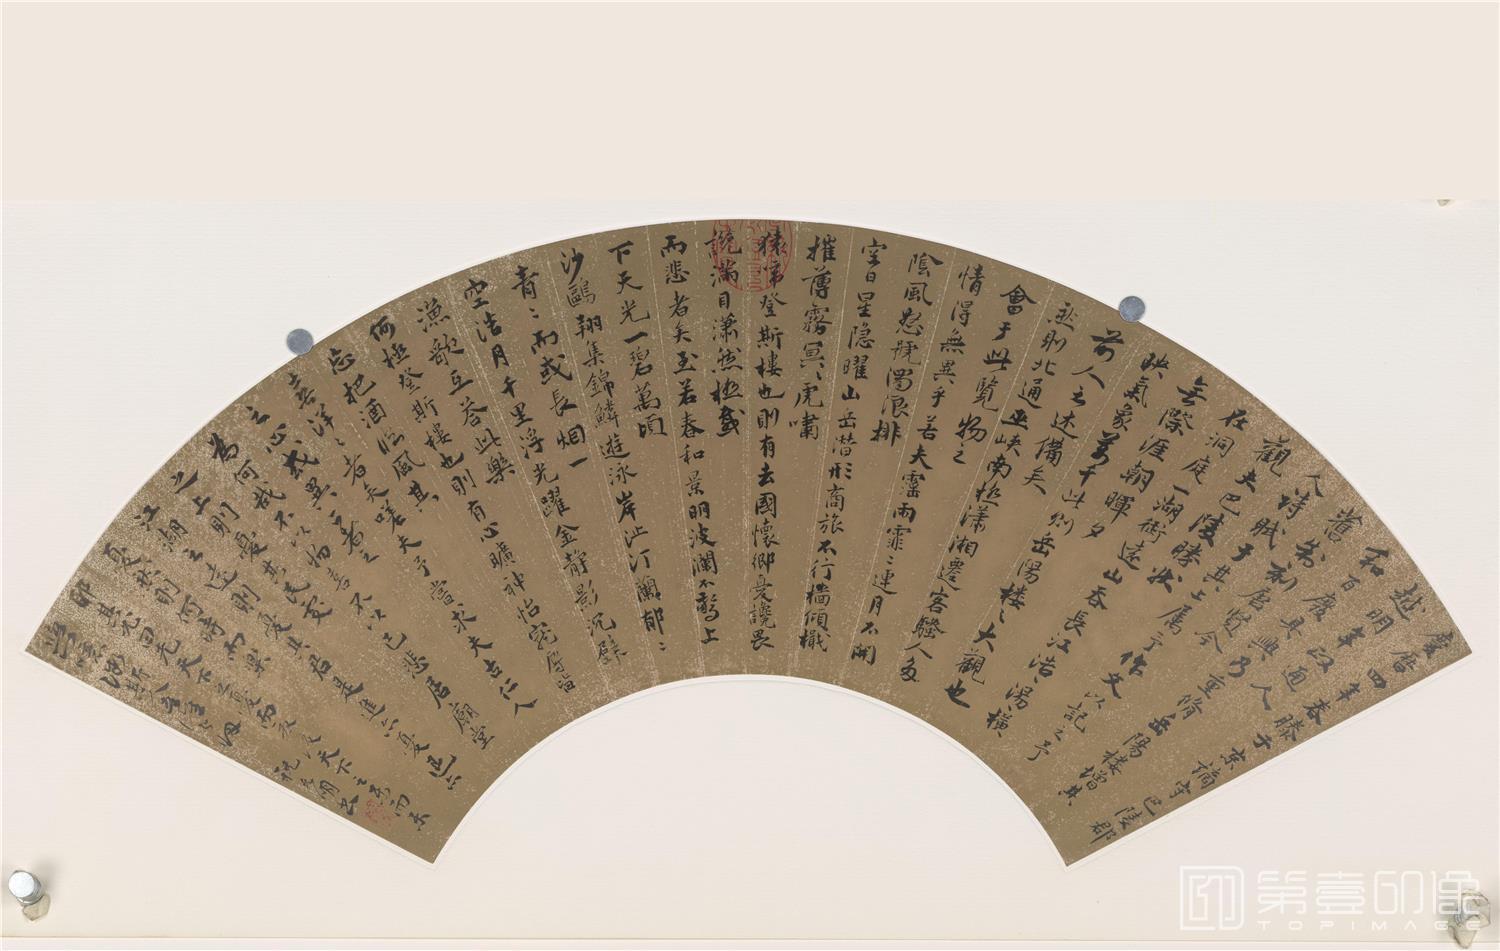 慶曆四年春滕子京謫守巴陵郡
越明年政通人
和百廢具興乃重脩岳陽樓增其
舊制刻唐賢今
人詩賦于其上属予作文以記之予
觀夫巴陵勝状
在洞庭一湖銜遠山吞長江浩〻湯〻横
無際涯朝暉夕
映氣象萬千此則岳陽樓之大觀也
前人之述備矣
然則北通巫峡南極瀟湘遷客騷人多
會于此覽物之
情得無異乎若夫霪雨霏〻連月不開
陰風怒號濁浪排
空日星隐曜山岳潜形商旅不行檣傾檝
摧薄霧冥〻虎嘯
猿啼登斯樓也則有去國懷鄉憂讒畏
譏滿目瀟然極感
而悲者矣至若春和景明波瀾不驚上
下天光一碧萬頃
沙鷗翔集錦鱗遊泳岸芷汀蘭郁〻
青〻而或長烟一
空浩月千里浮光躍金静影沉璧
漁歌互答此樂
何極登斯樓也則有心曠神怡寵辱皆
忘把酒臨風其
喜洋〻者矣嗟夫予嘗求夫古仁人
之心或異二者之
為何哉不以物喜不以己悲居廟堂
之上則憂其民處
江湖之遠則憂其君是進亦憂退亦
憂然則何時而樂
耶其必曰先天下之憂而憂後天下之樂而樂
歟噫微斯人吾誰與歸
祝允明書
第壹印像
TOPIMAGE